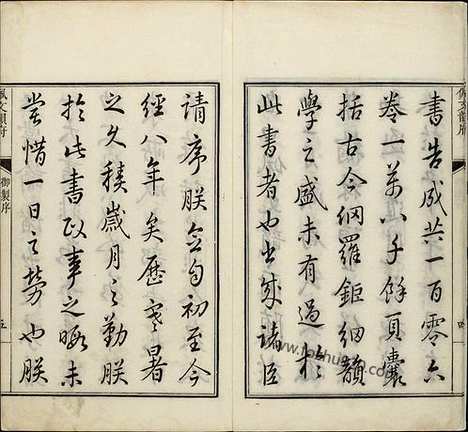 書告成共一百零六
卷一萬八千餘頁囊
括古今網羅鉅細韻
學之盛未有過於
此書者也書成諸臣
請序朕念自初至今
經八年矣歷寒暑
之久積歲月之勤朕
於此書政事之暇未
嘗惜一日之勞也朕
佩文韻府
御製序
五